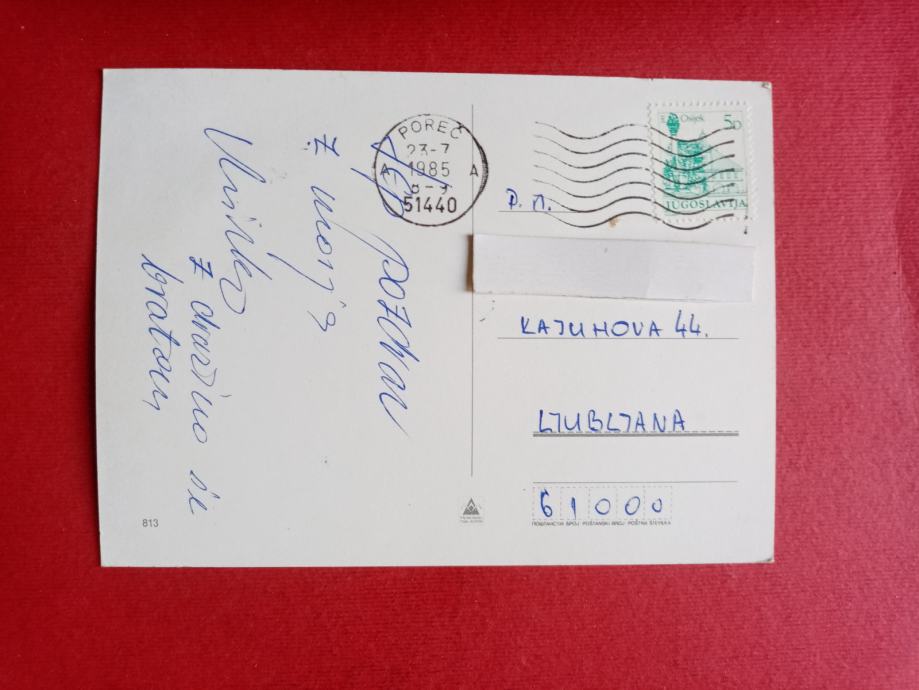 Lep pozdrav
z morja
z družino in
bratom
POREČ
23-7
1985
A A
8-9
51440
Osijek
5D
JUGOSLAVIJA
P. n.
KAJUHOVA 44.
LJUBLJANA
61000
ПОШТАНСКИ БРОЈ POŠTANSKI BROJ POŠTNA ŠTEVILKA
813